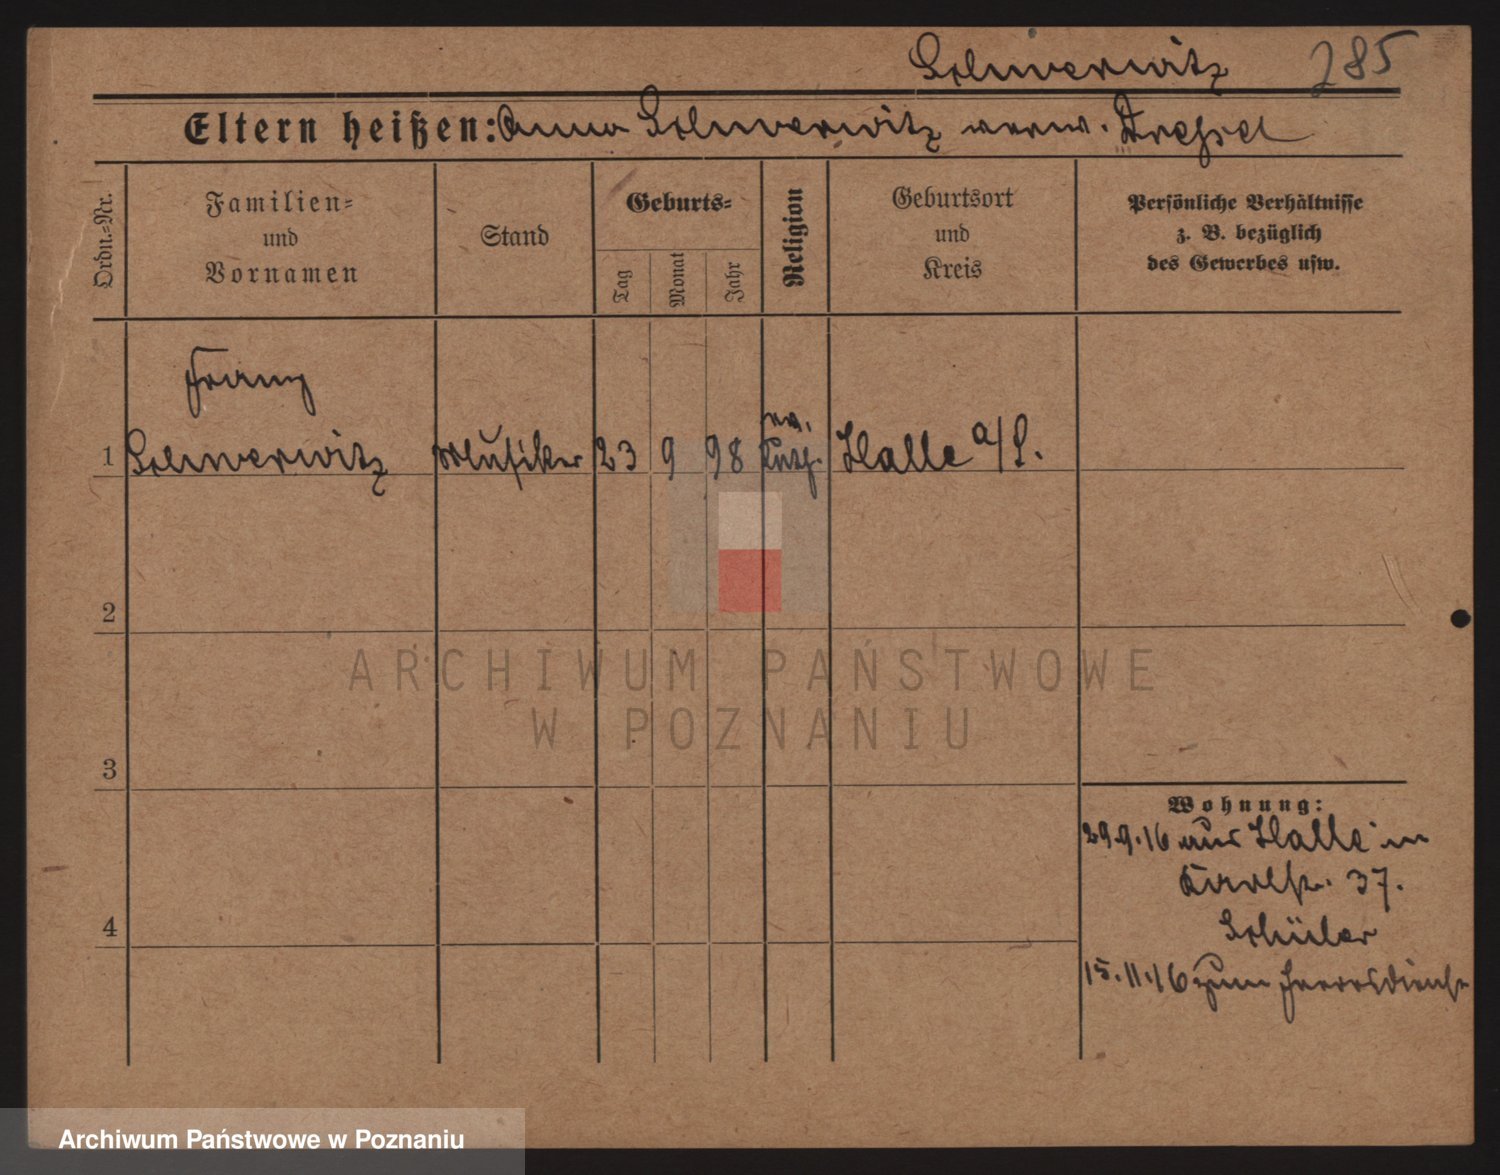 Schmerwitz 285
Eltern heißen: Anna Schmerwitz verw.
Ordn.-Nr.
Familien-
und
Vornamen
Stand
Geburts-
Tag
Monat
Jahr
Religion
Geburtsort
und
Kreis
Persönliche Verhältnisse
z. B. bezüglich
des Gewerbes usw.
Franz
ev.
1 Schmerwitz Musiker 23 9 98 Luth. Halle a/S.
2
3
4
Wohnung:
29.9.16 aus Halle in
37.
Schüler
15.11.16 zum Heeresdienst
ARCHIWUM PAŃSTWOWE
W POZNANIU
Archiwum Państwowe w Poznaniu